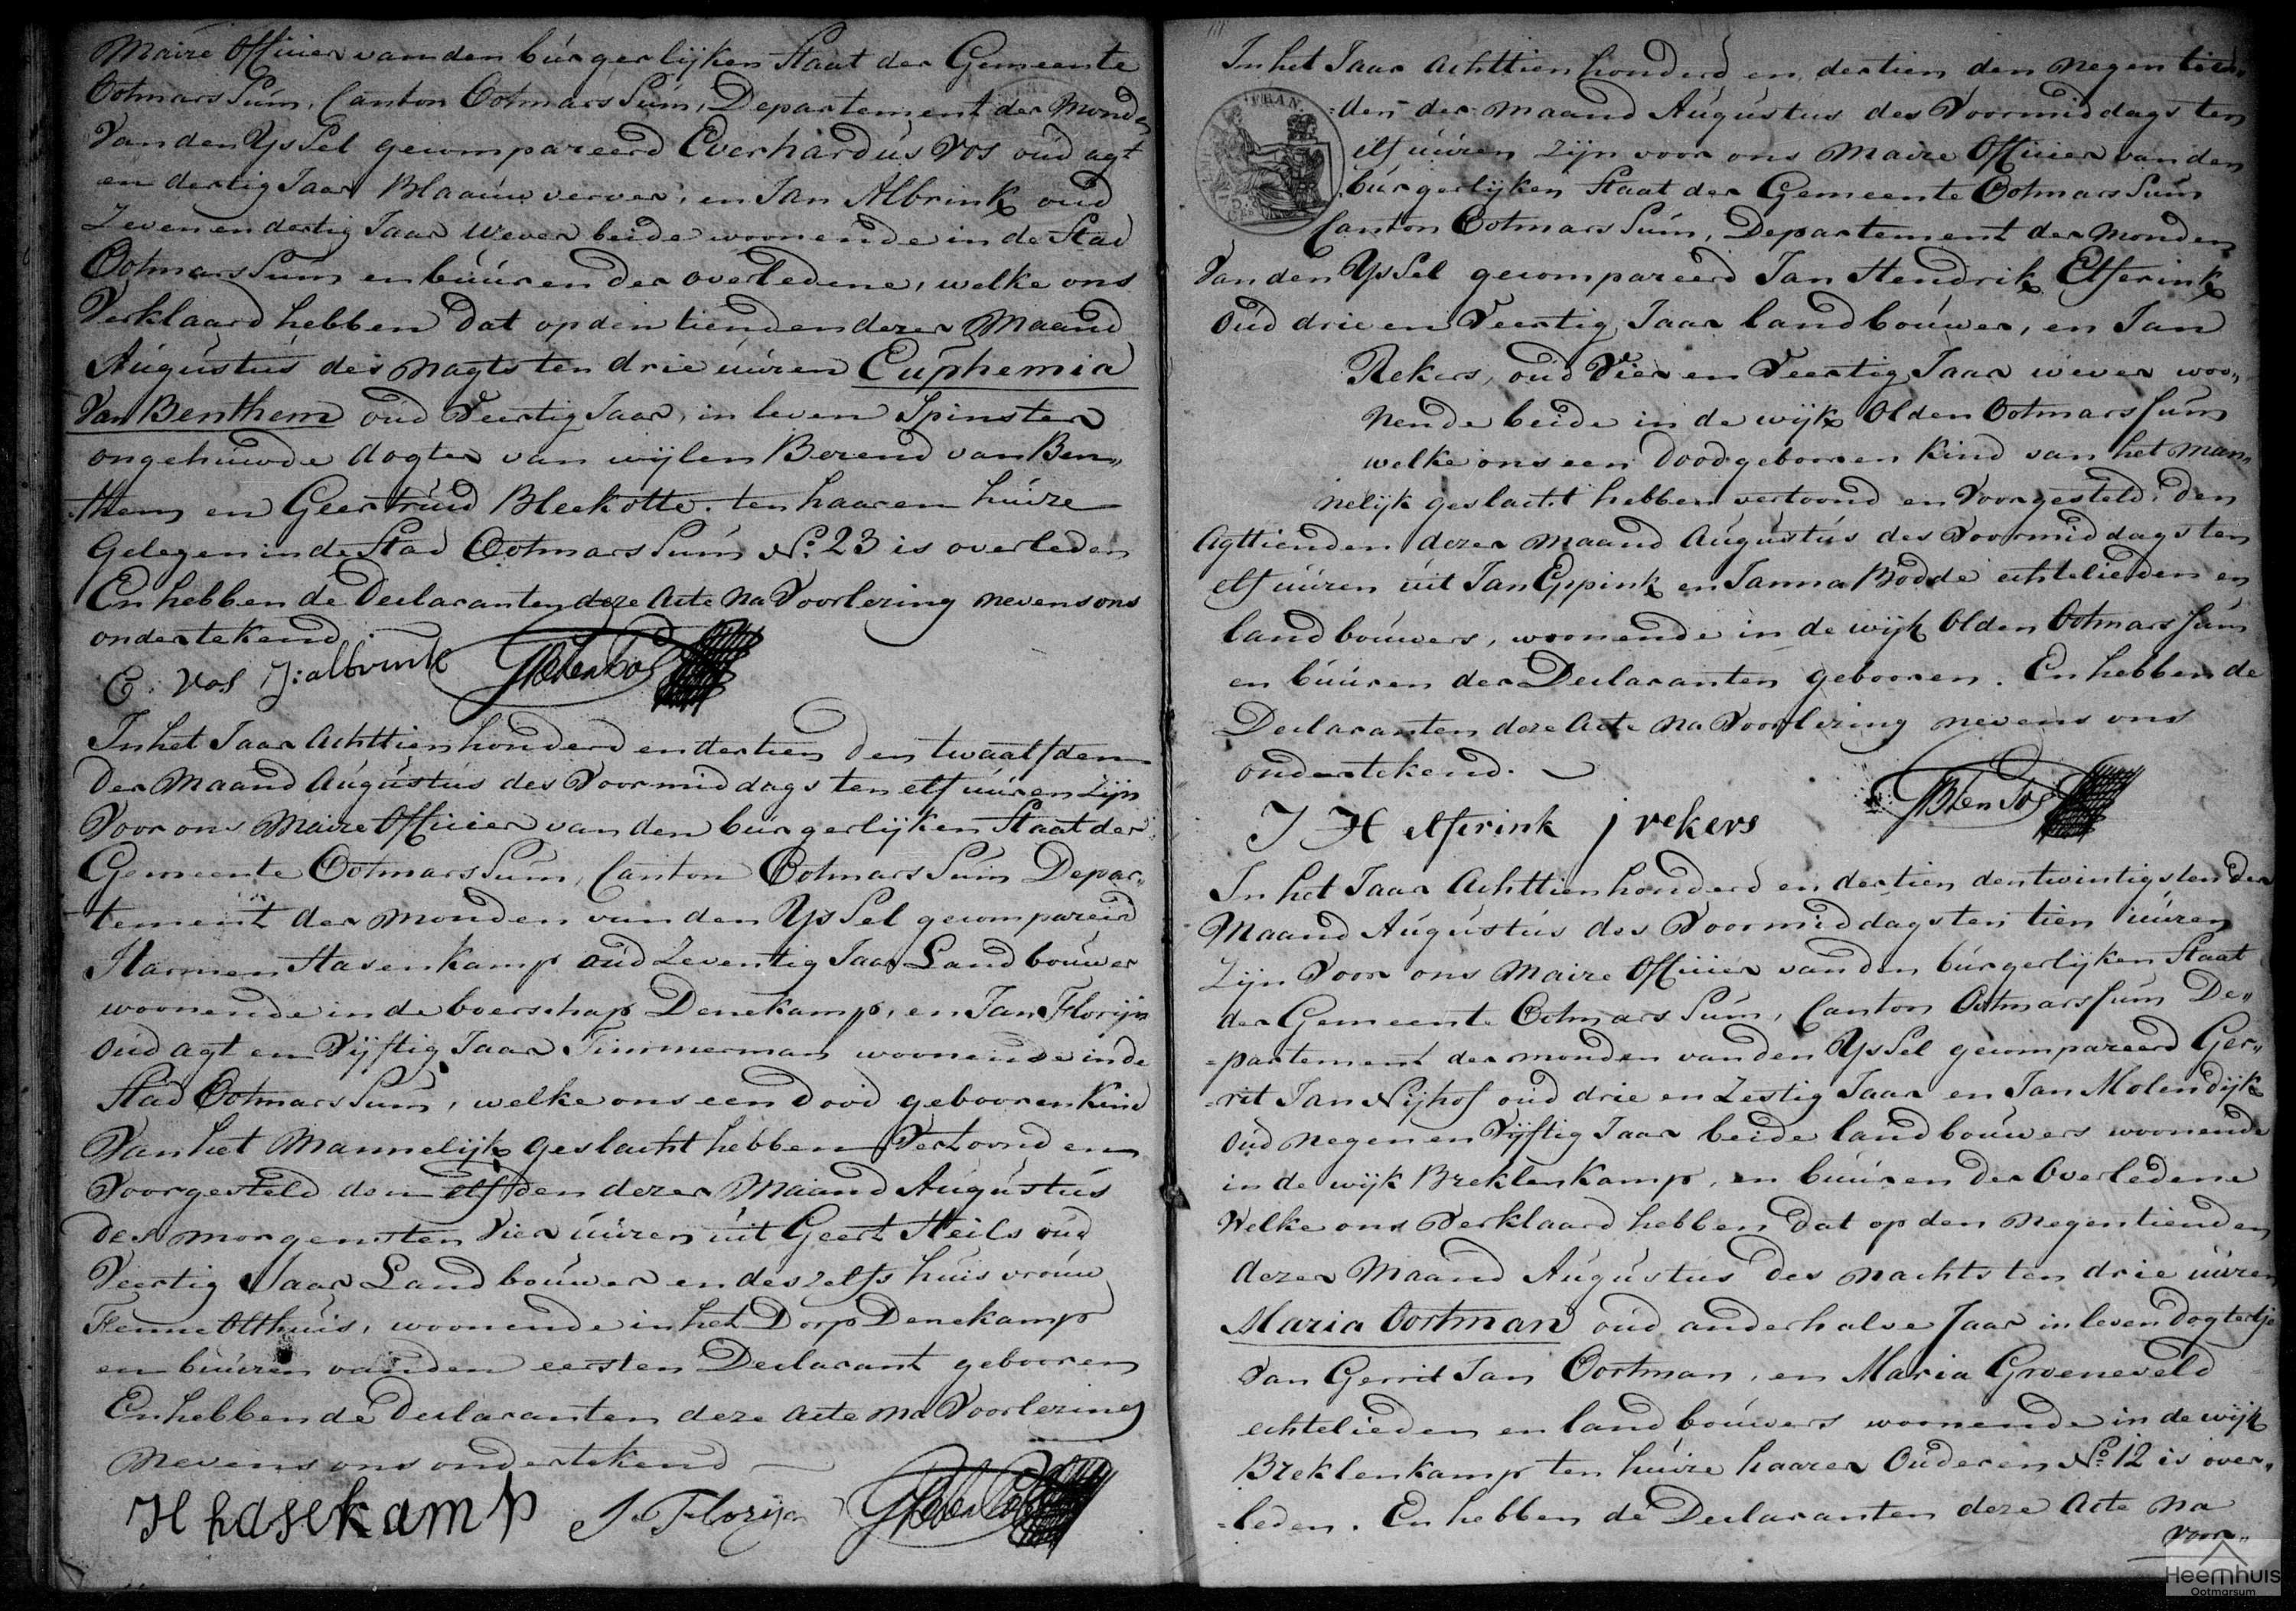 Maire Officier van den burgerlijken Staat der Gemeente
OotmarsSum, Canton OotmarsSum, Departement der Monden
Van den YsSel gecompareerd Everhardus Vos oud agt
en dertig Jaar Blaauwverver, en Jan Albrink oud
Zeven en dertig Jaar Wever beide woonende in de Stad
OotmarsSum en buuren der overledene, welke ons
Verklaard hebben dat op den tienden dezer Maand
Augustus des Nagts ten drie uuren Euphemia
Van Benthem oud Veertig Jaar, in leven Spinster
ongehuwde dogter van wijlen Berend van Ben„
them en Geertruid Bleekotte ten haaren huize
Gelegen in de Stad OotmarsSum No. 23 is overleden
En hebben de Declaranten deze Acte Na Voorlezing nevens ons
ondertekend.
E: Vos J: albrink
In het Jaar Achttienhonderd en dertien den twaalfden
Der Maand Augustus des Voormiddags ten elf uuren zijn
Voor ons Maire Officier van den burgerlijken Staat der
Gemeente OotmarsSum, Canton OotmarsSum Depar„
tement der Monden van den YsSel gecompareerd
Harmen Hasenkamp oud Zeventig Jaar Landbouwer
woonende in de boerschap Denekamp, en Jan Florijn
Oud agt en Vijftig Jaar Timmerman woonende in de
Stad OotmarsSum, welke ons een dood gebooren Kind
Van het Mannelijk geslacht hebben Vertoond en
Voorgesteld den elfden dezer Maand Augustus
des morgens ten Vier uuren uit Geert Heils oud
Veertig Jaar Landbouwer en deszelfs huisvrouw
Fenne Olthuis, woonende in het Dorp Denekamp
en buuren van den eersten Declarant gebooren
En hebben de Declaranten deze Acte Na Voorlezing
nevens ons ondertekend
H hasekamp J. Florijn
In het Jaar Achttienhonderd en dertien den Negentien„
=den der maand Augustus des Voormiddags ten
elf uuren zijn voor ons Maire Officier van den
burgerlijken Staat der Gemeente OotmarsSum
Canton OotmarsSum, Departement der Monden
Van den YsSel gecompareerd Jan Hendrik Elferink
Oud drie en Veertig Jaar landbouwer, en Jan
Rekers, oud Vier en Veertig Jaar wever woo„
nende beide in de wijk Olden Ootmarssum
welke ons een doodgebooren Kind van het man„
nelijk geslacht hebben vertoond en Voorgesteld, den
Agttienden dezer Maand Augustus des Voormiddags ten
elf uuren uit Jan Eppink en Janna Bodde echtelieden en
landbouwers, woonende in de wijk Olden Ootmarssum
en buuren der Declaranten gebooren. En hebben de
Declaranten deze Acte Na Voorlezing nevens ons
ondertekend.
J H elferink j rekers
In het Jaar Achttienhonderd en dertien den twintigsten der
Maand Augustus des Voormiddags ten tien uuren
Zijn Voor ons Maire Officier van den burgerlijken Staat
der Gemeente OotmarsSum, Canton Ootmarssum De„
=partement der monden van den YsSel gecompareerd Ger„
=rit Jan Nijhof oud drie en Zestig Jaar en Jan Molendijk
oud Negen en Vijftig Jaar beide landbouwers woonende
in de wijk Breklenkamp, en buuren der Overledene
Welke ons Verklaard hebben dat op den Negentienden
dezer Maand Augustus des Nachts ten drie uuren
Maria Oortman oud anderhalve Jaar in leven Dogtertje
Van Gerrit Jan Oortman, en Maria Groeneveld
echtelieden en landbouwers woonende in de wijk
Breklenkamp ten huize haarer Ouderen No. 12 is over„
=leden. En hebben de Declaranten deze Acte Na
Voor„
Heemhuis
Ootmarsum